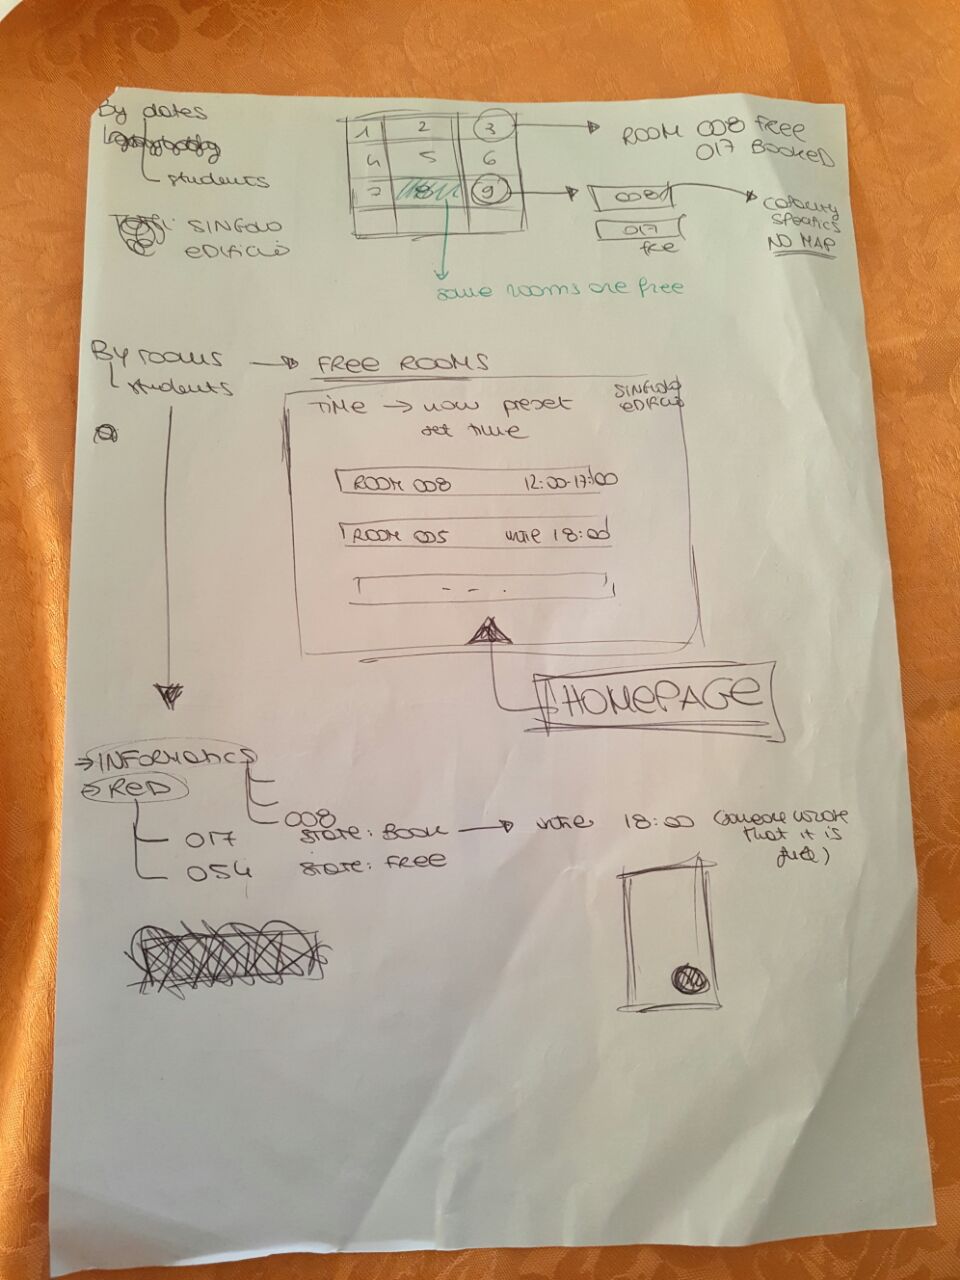 By dates
students
SINGOLO
EDIFICIO
1 2 3
4 5 6
7 8 9
ROOM 008 FREE
017 BOOKED
008
017
free
SPECIFICS
NO MAP
some rooms are free
By rooms
students
FREE ROOMS
TIME → now preset
set time
SINGOLO
EDIFICIO
ROOM 008 12:00-17:00
ROOM 005 18:00
- - .
HOMEPAGE
→INFORMATICS
→RED
008
017 STATE: BOOK 18:00 (someone wrote
that it is
054 STATE: FREE